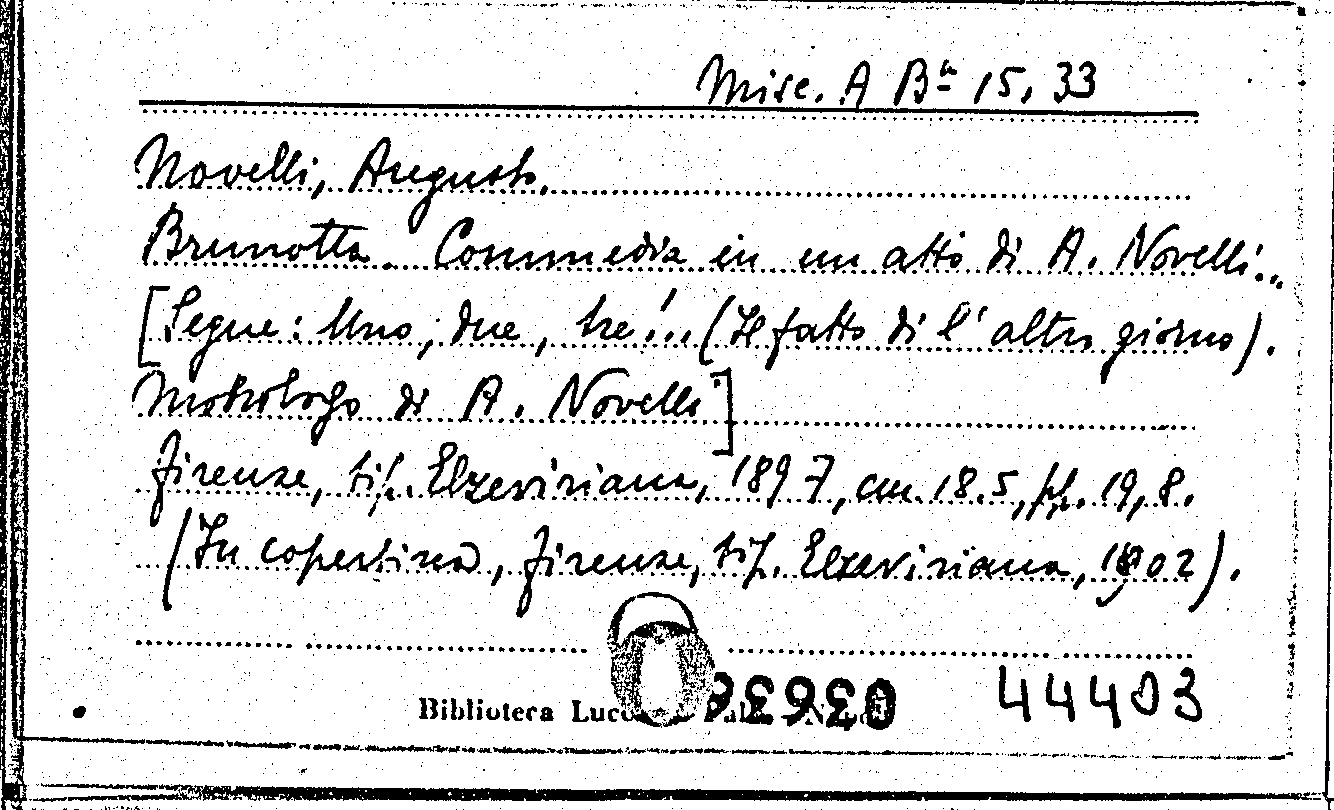 Misc. A Bᵃ 15, 33
Novelli, Augusto.
Brunotta. Commedia in un atto di A. Novelli...
[Segue: Uno, due, tre!... (Il fatto di l'altro giorno).
Monologo di A. Novelli]
Firenze, tip. Elzeviriana, 1897, cm. 18.5, pp. 19, 8.
(In copertina, Firenze, tip. Elzeviriana, 1902).
Biblioteca
44403